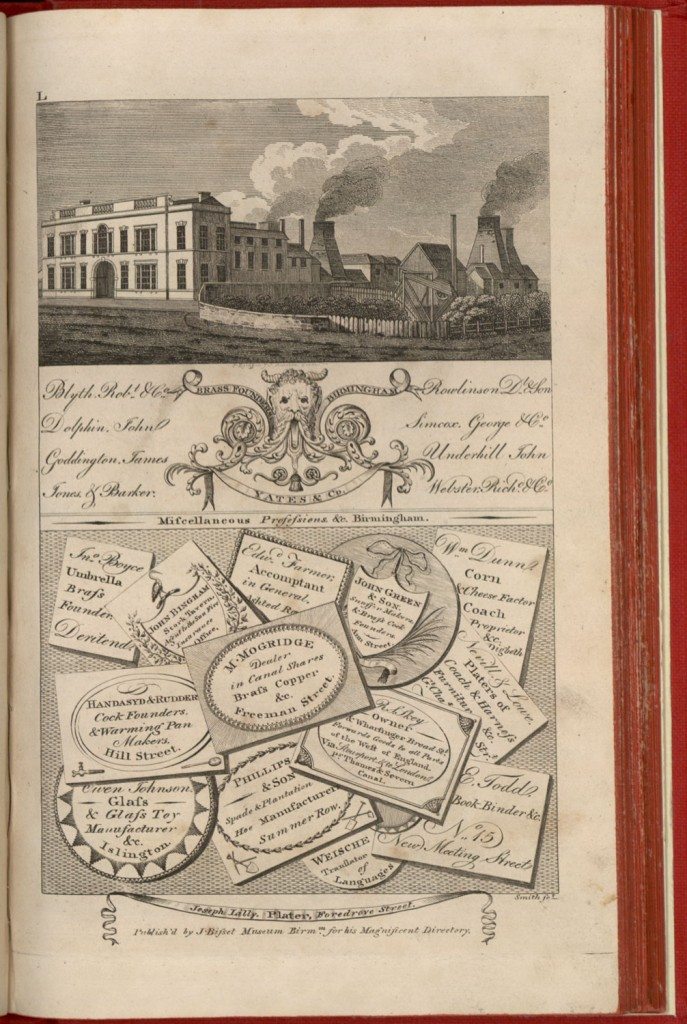 L
BRASS FOUNDERS BIRMINGHAM
Blyth. Robt. & Co.
Dolphin, John
Goddington, James
Jones, & Barker.
Rowlinson Dl. & Son
Simcox, George & Co.
Underhill John
Webster Richd. & Co.
YATES & Co.
Miſcellaneous Profeſsions &c. Birmingham.
Jno. Boyce
Umbrella
Braſs
Founder,
Deritend
JOHN BINGHAM
Stork Tavern
Agent to the Sun Fire
Insurance
Office,
Edwd. Farmer,
Accomptant
in General,
JOHN GREEN
& SON.
Snuffer Makers
& Braſs Cock
Founders
Ann Street
Wm. Dunn
Corn
& Cheese Factor
Coach
Proprietor
&c.
Digbeth
M. MOGRIDGE
Dealer
in Canal Shares
Braſs Copper
&c.
Freeman Street.
Nevill & Lowe,
Platers of
Coach & Harneſs
Furniture,
&c.
Gt. Chas. Str.t
HANDASYD & RUDDER
Cock Founders,
& Warming Pan
Makers,
Hill Street.
Owner
& Wharfinger Broad St.
Forwards Goods to all Parts
of the West of England
Via Stourport, & to London,
Pr. Thames & Severn
Canal.
Owen Johnson,
Glaſs
& Glaſs Toy
Manufacturer
&c.
Islington
PHILLIPS
& SON
Spade & Plantation
Hoe Manufacturer
Summer Row.
E. Todd
Book Binder &c.
No. 75
New Meeting Street
WEISCHE
Translator
of
Languages
Smith sc.
Joseph Lilly, Plater, Foredrove Street.
Publish'd by J. Biſset Museum Birmm. for his Magnificent Directory.